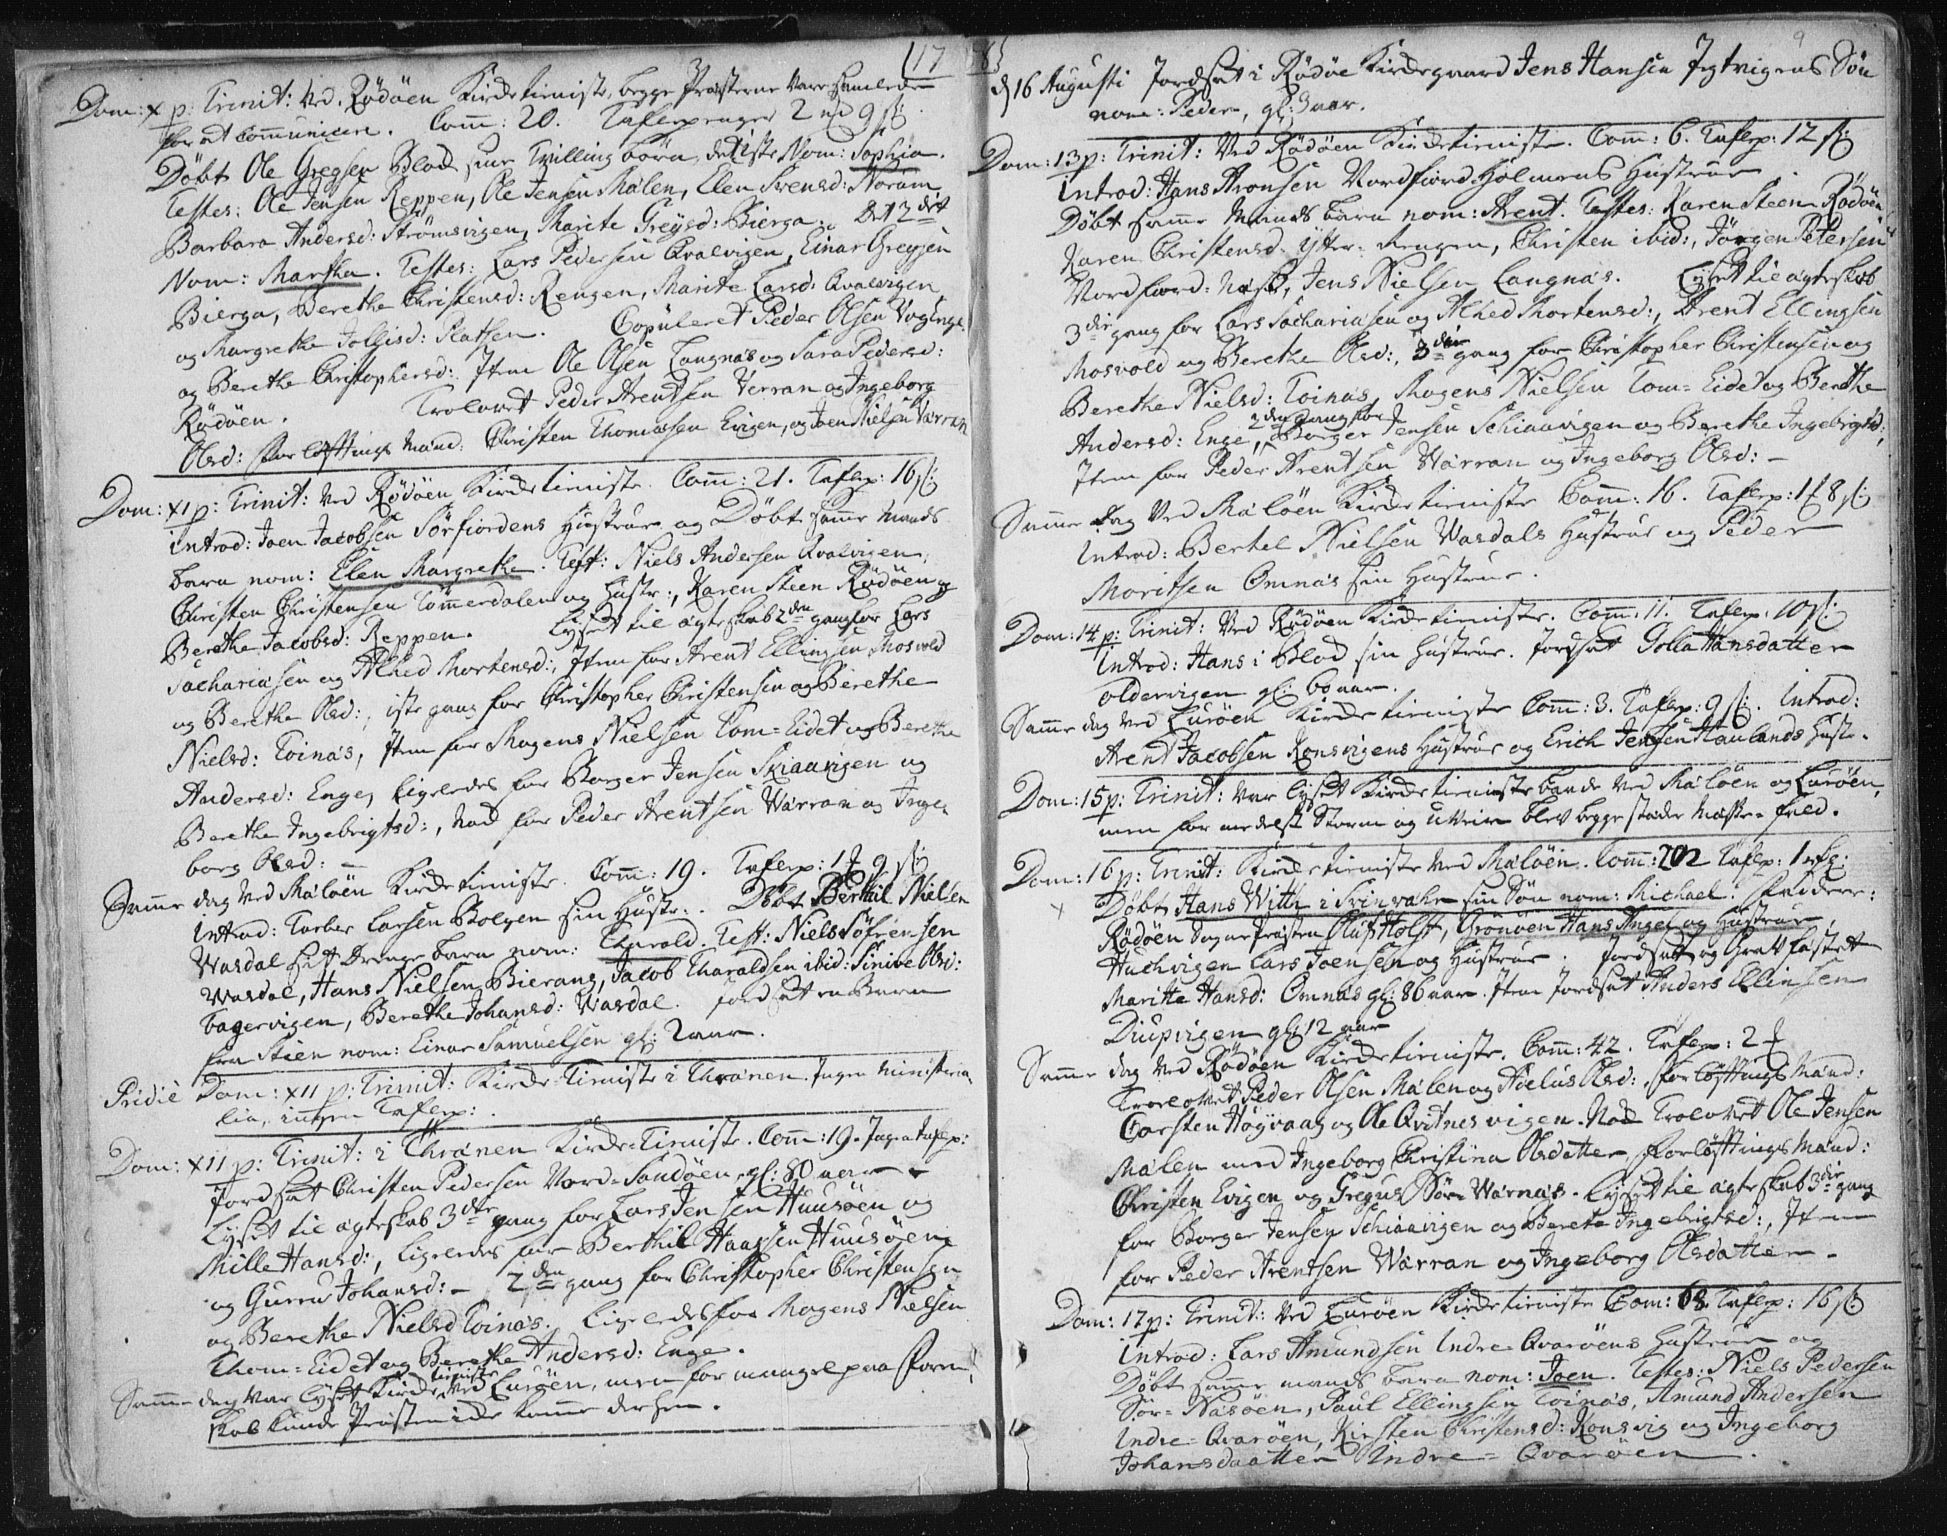 17
Dom: X p: Trinit: Ved Rödöen Kirketieniste, begge Præsterne vare samlede
for at communicere. Comm: 20. Taflepenger 2
Döbt Ole Gregsen Blod sine Tvilling börn, det 1ste Nom: Sophia.
Testes: Ole Jensen Reppen, Ole Jensen Målen, Elen Svensd: Noram
Barbara Andersd: Strömsvigen, Marite Gregsd: Bierga. Det 2det
Nom: Martha. Testes: Lars Pedersen Qvalvigen, Einar Gregsen
Bierga, Berethe Christensd: Rengen, Marite Larsd: Qvalvigen
og Margrethe Tollefsd: Platsen. Copuleret Peder Olsen Vog Enge
og Berethe Christophersd: Item Ole Olsen Langnås og Sara Pedersd:
Rödöen. Trolovet Peder Arentsen Værran og Ingeborg
Olsd: Forlöftings Mænd: Christen Thomæsen Evigen, og Joen Nielsen Værran
Dom: XI p: Trinit: Ved Rödöen Kirketieniste. Comm: 21. Taflep: 16 ß:
Introd: Joen Jacobsen Sörfiordens Hustrue og Döbt samme Mands
barn nom: Elen Margrethe. Test: Niels Andersen Qvalvigen,
Christen Christensen Tömmerdalen og Hustr:, Karen Steen Rödöen og
Berethe Jacobsd: Reppen. Lyset til ægteskab 2den gang for Lars
Sachariasen og Alhed Mortensd:, Item for Arent Ellingsen Mosvold
og Berethe Olsd:, 1ste gang for Christopher Christensen og Berethe
Nielsd: Toinås, Item for Mogens Nielsen Tom-Eidet og Berethe
Andersd: Enge, ligeledes for Borger Jensen Skiaavigen og
Berethe Ingebrigtsd:, Nok for Peder Arentsen Værran og Inge-
borg Olsd: –
Samme dag ved Måløen Kirketieniste. Comm: 19. Taflep: 1 9 ß:
Introd: Torber Larsen Bolgen sin Hustr:. Döbt Berthil Nielsen
Wasdal sit Drenge barn nom: Tharald. Test: Niels Söfrensen
Wasdal, Hans Nielsen Bierang, Jacob Tharaldsen ibid: Sinive Olsd:
Fagervigen, Berethe Johansd: Wasdal. Jordsat en Barn
fra Stien nom: Einar Samuelsen gl: 2 aar.
Pridie Dom: XII p: Trinit: Kirke-Tieniste i Thrånen. Ingen Ministeria-
lia, ingen Taflep:
Dom: XII p: Trinit: i Thrånen Kirke-Tieniste. Comm: 19. Ingen Taflep:
Jordsat Christen Pedersen Nord-Sandöen, gl: 80 aar
Lyset til ægteskab 3die gang for Lars Jensen Huusöen og
Mille Hansd:, ligeledes for Berthil Haagsen Huusöen
og Gurru Johansd: – 2den gang for Christopher Christensen
og Berethe Nielsd Toinås. Ligeledes for Mogens Nielsen
Thom-Eidet og Berethe Andersd: Enge.
Samme dag var lyset Kirketieniste ved Luröen, men for mangel paa Foren-
skab kunde Præsten icke komme dersen.
8
9
d 16 Augusti Jordsat i Rödöe Kirkegaard Jens Hansen Jegtvigens Sön
nom: Peder, gl: 3 aar.
Dom: 13 p: Trinit: Ved Rödöen Kirketieniste. Comm: 6. Taflep: 12 ß:
Introd: Hans Aronsen Nordfiord Holmens Hustrue.
Döbt samme Mands barn nom: Arent. Testes: Karen Steen Rödöen,
Karen Christensd: Ytter-Rengen, Christen ibid:, Jörgen Petersen
Nordfiord-Næss, Jens Nielsen Langnås. Lyset til ægteskab
3die gang for Lars Sachariasen og Alhed Mortensd:, Arent Ellingsen
Mosvold og Berethe Olsd:, 3die gang for Christopher Christensen og
Berethe Nielsd: Toinås, Mogens Nielsen Tom-Eidet og Berethe
Andersd: Enge, 2den gang for Borger Jensen Schiaavigen og Berethe Ingebrigtsd:,
Item for Peder Arentsen Wårran og Ingeborg Olsd: –
Samme dag Ved Måløen Kirketieniste Comm: 16. Taflep: 1 8 ß:
Introd: Bertel Nielsen Wasdals Hustrue og Peder
Moritsen Omnås sin Hustrue.
Dom: 14 p: Trinit: Ved Rödöen Kirketieniste. Comm: 11. Taflep: 10 ß:
Introd: Hans i Blod sin Hustrue. Jordsat Golla Hansdatter
Oldervigen gl: 60 aar.
Samme dag ved Luröen Kirketieniste Comm: 3. Taflep: 9 ß:. Introd:
Arent Jacobsen Konsvigens Hustrue og Erich Jensen Haulands Hustr.
Dom: 15 p: Trinit: var lyset Kirketieniste baade ved Måløen og Luröen,
men formedelst Storm og uveir blev begge stæder Messe-fald.
Dom: 16 p: Trinit: Kirketieniste ved Måløen. Comm: 22 Taflep: 1
Döbt Hans With i Svinvær sin Sön nom: Michael. Faddere:
Rödöen Sogne Præsten Oluf Holst, Grönöen Hans Angel og Hustrue,
Huchvigen Lars Joensen og Hustrue. Jordsat og Grav fæstet
Maritte Hansd: Omnås gl: 86 aar. Item Jordsat Anders Ellinsen
Diupvigen gl: 12 aar
Samme dag ved Rödöen Kirketieniste. Comm: 42. Taflep: 2
Trolovet Peder Olsen Målen og Aelus Olsd:, Forlöftings Mænd:
Carsten Högvaag og Ole Qvitnesvigen. Nok Trolovet Ole Jensen
Målen med Ingeborg Christina Olsdatter, Forlöftings Mænd:
Christen Evigen og Gregus Sör-Wårnæs. Lyset til ægteskab 3die gang
for Borger Jensen Schiaavigen og Berete Ingebrigtsd:, Item
for Peder Arentsen Wårran og Ingeborg Olsdatter.
Dom: 17 p: Trinit: Ved Luröen Kirketieniste Com: 68 Taflep: 16 ß:
Introd: Lars Amundsen Indre-Qvaröens Hustrue og
Döbt samme mands barn nom: Joen. Testes: Niels Pedersen
Sör-Næsöen, Paul Ellingsen Toinås, Amund Andersen
Indre-Qvaröen, Kirsten Christensd: Konsvig og Ingeborg
Johansdaatter Indre-Qvaröen.